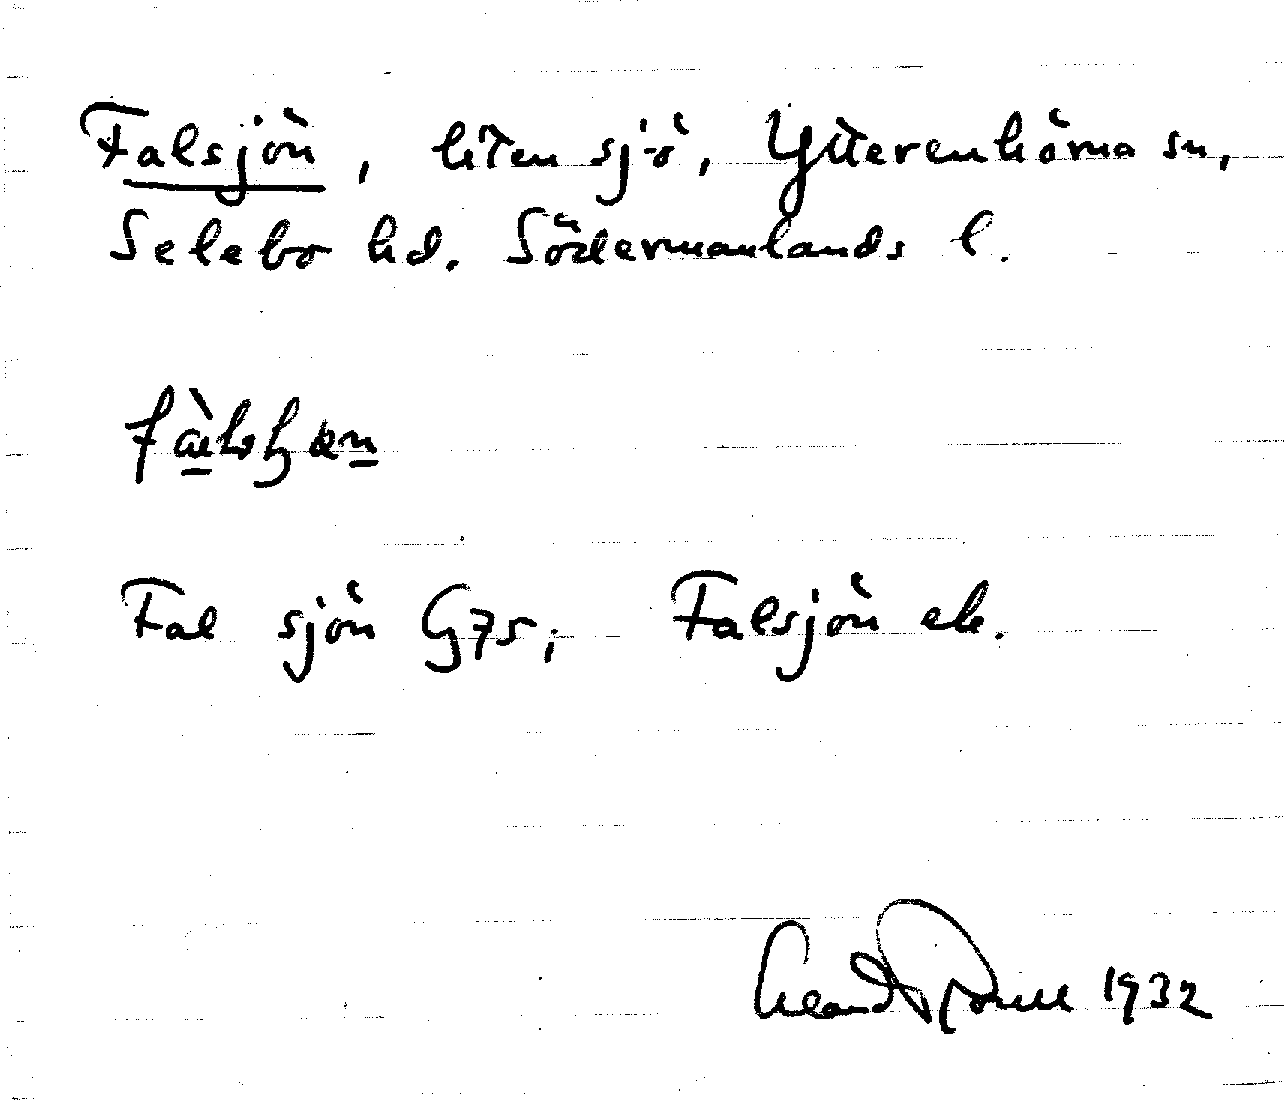 Falsjön, liten sjö, Ytterenhörna sn,
Selebo hd. Södermanlands l.
Fal sjön G75; Falsjön ek.
1932